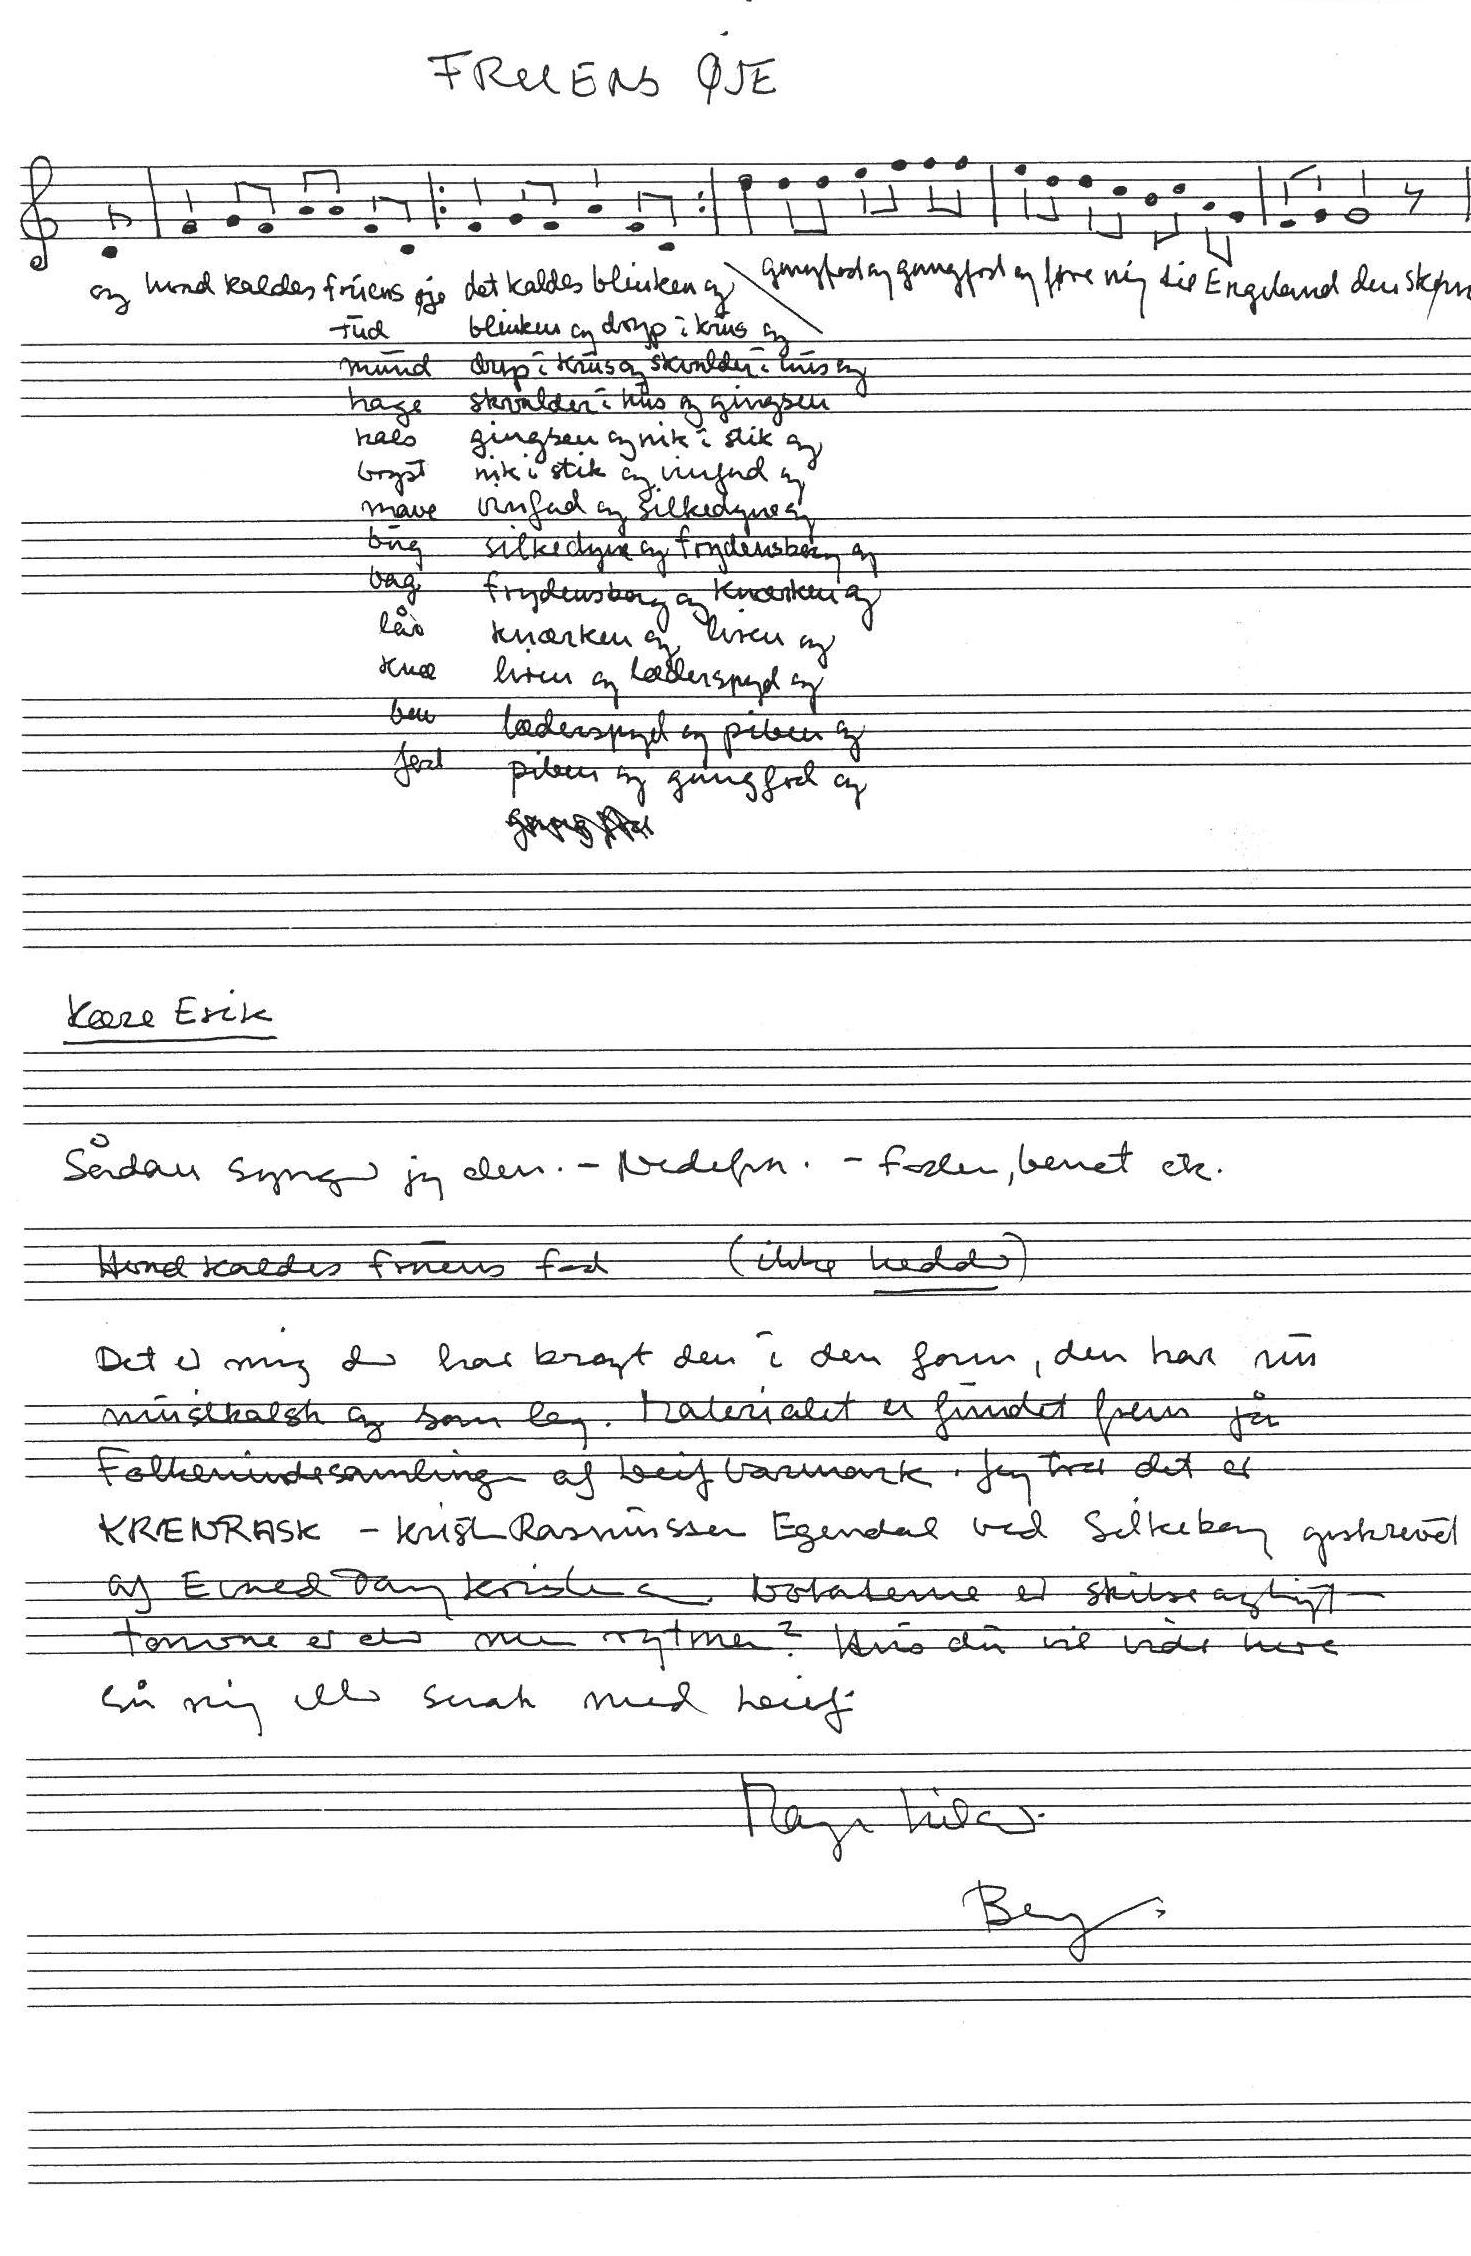 FRUENS ØJE
og hvad kaldes fruens øje det kaldes blinken og gangfod og gangfod og føre mig til Engeland den skøn
tud blinken og dryp i krus og
mund dryp i krus og skvalder i hus og
hage skvalder i hus og gingsen
hals gingsen og nik i stik og
bryst nik i stik og vinfad og
mave vinfad og silkedyne og
bug silkedyne og frydensborg og
bag frydensborg og knærken og
lår knærken og liren og
knæ liren og læderspyd og
ben læderspyd og piben og
fod piben og gangfod og
Kære Erik
Sådan synger jeg den. - Nedefra. - Foden, benet etc.
Hvad kaldes fruens fod (ikke hedder)
Det er mig der har bragt den i den form, den har nu
musikalsk og som leg. Materialet er fundet frem på
Folkemindesamlingen af Leif Varmark. Jeg tror det er
KRÆNRASK - Rasmussen Egendal ved Silkeborg
af Evald Tang Kristensen. er
er der rytmer? Hvis du vil vide mere
så ring eller snak med Leif.
Mange hilsner